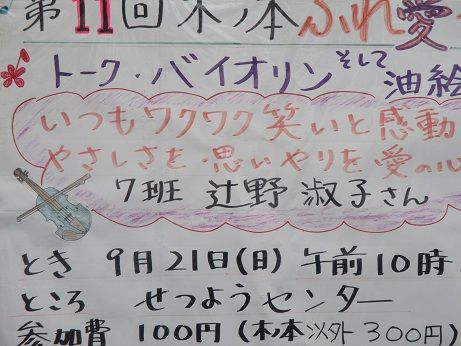 第11回 木ノ本ふれ愛
トーク・バイオリン そして 油絵
いつもワクワク笑いと感動
やさしさを思いやりを愛の心
7班 辻野 淑子さん
とき 9月21日(日) 午前10時
ところ せつようセンター
参加費 100円(木ノ本以外300円)